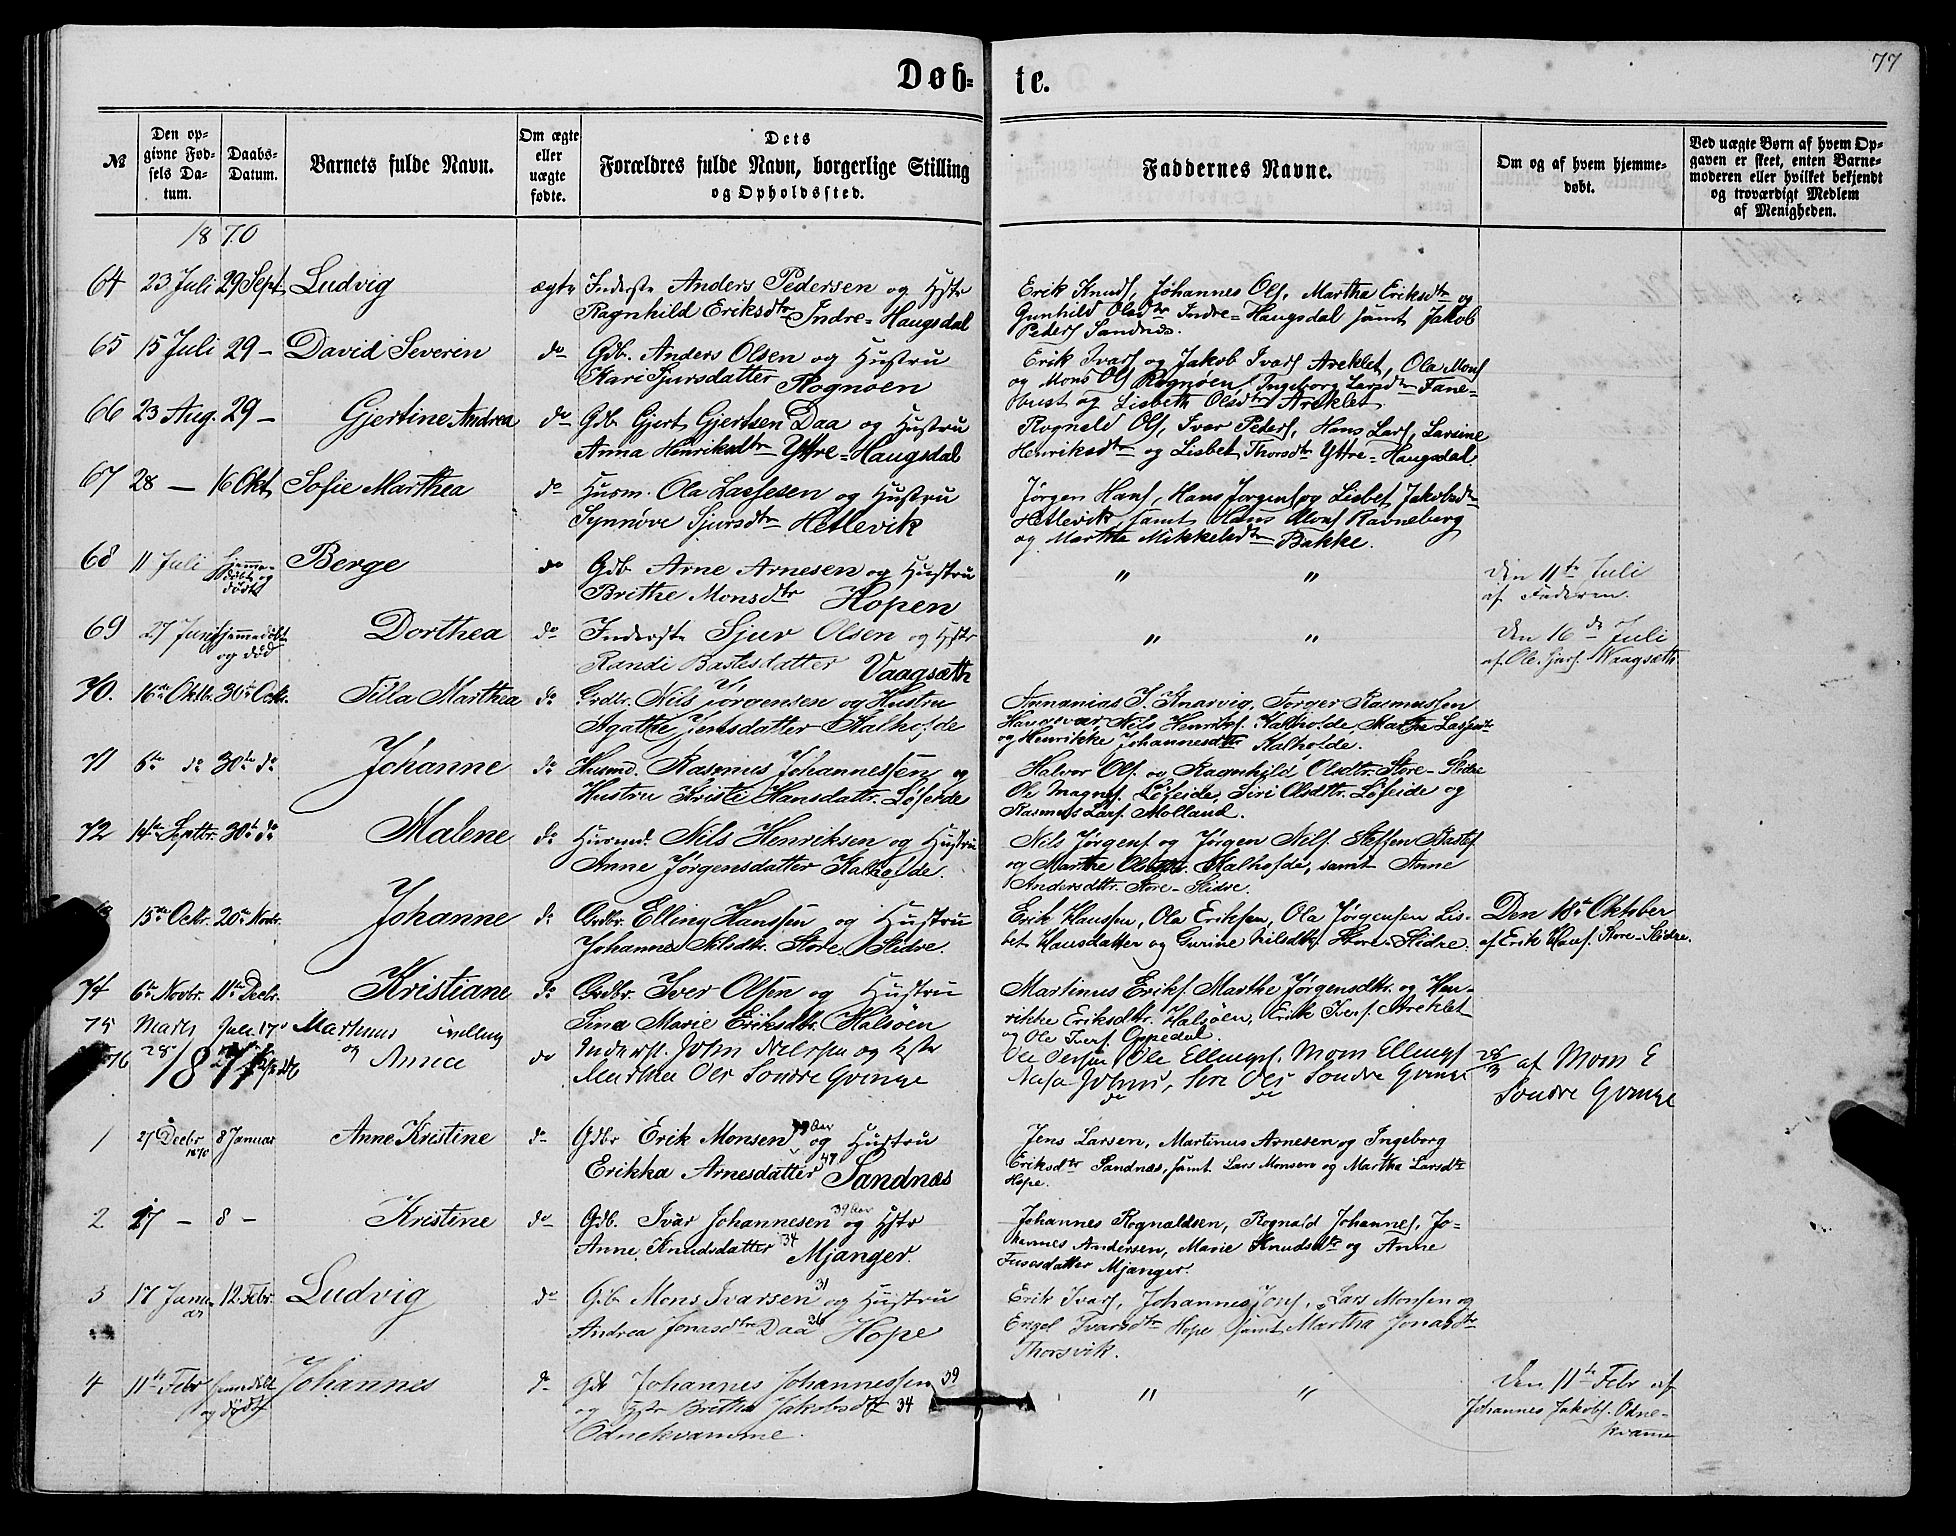 Døb- te.
77
№
Den op-
givne Fød-
sels Da-
tum.
Daabs-
Datum.
Barnets fulde Navn.
Om ægte
eller
uægte
fødte.
Dets
Forældres fulde Navn, borgerlige Stilling
og Opholdssted.
Faddernes Navne.
Om og af hvem hjemme-
døbt.
Ved uægte Børn af hvem Op-
gaven er skeet, enten Barne-
moderen eller hvilket bekjendt
og troværdigt Medlem
af Menigheden.
1870
64 23 Juli 29 Sept Ludvig ægte Inderste Anders Pedersen og Hstr
Ragnhild Eriksdtr Indre-Haugsdal
Erik Knuds, Johannes Ols, Martha Eriksdtr og
Gunhild Olsdtr Indre-Haugsdal samt Jakob
Peders Sandnæs.
65 15 Juli 29 — David Severin do Gdb. Anders Olsen og Hustru
Kari Sjursdatter Rognøen
Erik Ivars og Jakob Ivars Areklet, Ola Mons
og Mons Ols Rognøen, Ingeborg Larsdtr Fane-
bust og Lisbeth Olsdtr Areklet
66 23 Aug. 29 — Gjertine Andrea do Gdb. Gjert Gjertsen Daa og Hustru
Anna Henriksdtr Yttre-Haugsdal
Rognald Ols, Ivar Peders, Hans Lars, Larsine
Henriksdtr og Lisbet Thorsdtr Yttre-Haugsdal.
67 28 — 16 Okt Sofie Marthea do Husm. Ola Lassesen og Hustru
Synnøve Sjursdtr Hetlevik
Jørgen Hans, Hans Jørgens og Lisbet Jakobsdtr
Hetlevik, samt Hans Mons Ravneberg
og Martha Mikkelsdtr Bakke.
68 11 Juli hjemme-
døbt og
død Berge do Gdb Arne Arnesen og Hustru
Brithe Monsdtr Hopen
" "
Den 11te Juli
af Faderen.
69 27 Juni hjemmedøbt
og død Dorthea do Inderste Sjur Olsen og Hstr
Randi Bastesdatter Vaagsæth
" "
Den 16de Juli
af Ole Waagsæth
70. 16de Oktbr. 30te Octbr. Tilla Marthea do Grdbr. Nils Jørgensen og Hustru
Agathe Jensdatter Kalhofde
Annanias J. Knarvig, Torger Rasmussen
Haugsvær, Nils Henriks. Kalhofde, Marthe Lassesdtr
og Henrikke Johannesdtr Kalhofde.
71 6te do 30te do Johanne do Husmd. Rasmus Johannessen og
Hustru Kristi Hansdattr. Løfeide
Halvor Ols. og Ragnhild Olsdtr. Store-Slidre
Ole Magnes. Løfeide, Siri Olsdtr. Løfeide og
Rasmus Lars. Molland.
72 14de Septbr. 30te do Malene do Husmd. Nils Henriksen og Hustru
Anne Jørgensdatter Kalhofde.
Nils Jørgens og Jørgen Nils. Steffen Bastes
og Marthe Olsdtr. Kalhofde, samt Anne
Andersdtr. Store-Slidre.
15de Octbr. 20de Novbr. Johanne do Grdbr. Elling Hanssen og Hustru
Johanne Nilsdtr. Store-Slidre.
Erik Hanssen, Ola Eriksen, Ola Jørgensen Lis-
bet Hansdatter og Gurine Nilsdtr. Store-Slidre.
Den 18de Oktober
af Erik Hans. Store-Slidre.
74 6te Novbr. 11te Decbr. Kristiane do Grdbr. Iver Olsen og Hustru
Sina Marie Eriksdtr. Halsøen
Martinus Eriks. Marthe Jørgensdtr. og Hen-
rikke Eriksdtr. Halsøen, Erik Ivers. Areklet
og Ole Ivers. Oppedal.
75 Marts Juli 17 Martinus tvilling
76 28 og Anna do Inderst. John Nilssen og Hstr
Martha Ols Søndre Qvinge
Ole Ellings, Mons Ellings
Søndre Qvinge
28/3 af Mons E
Søndre Qvinge
1871
1 27 Decbr
1870 8 Januar Anne Kristine do Gdbr Erik Monsen 49 Aar og Hustru
Erikka Arnesdatter 47 Sandnæs
Jens Larsen, Martinus Arnesen og Ingeborg
Eriksdtr Sandnæs, samt Lars Monsen og Martha Larsdtr
Hope.
2 27 — 8 — Kristine do Gdb. Ivar Johannesen 39 Aar og Hstr
Anne Knudsdatter 34 Mjanger.
Johannes Rognaldsen, Rognald Johannes, Jo-
hannes Andersen, Marie Knudsdtr og Anne
Fusesdatter Mjanger.
3 17 Janu
ar 12 Febr. Ludvig do Gdb Mons Ivarsen 31 og Hustru
Andrea Jonasdtr Daa 26 Hope
Erik Ivars, Johannes Jons, Lars Monsen og
Engel Ivarsdtr Hope samt Martha Jonasdtr
Thorsvik.
4 11te Febr hjemdøbt
og død Johannes do Gdb Johannes Johannessen 39
og Hstr Britha Jakobsdtr 34
Odnekvamme.
" "
Den 11te Febr af
Johannes Jakobs. Odne-
kvamme